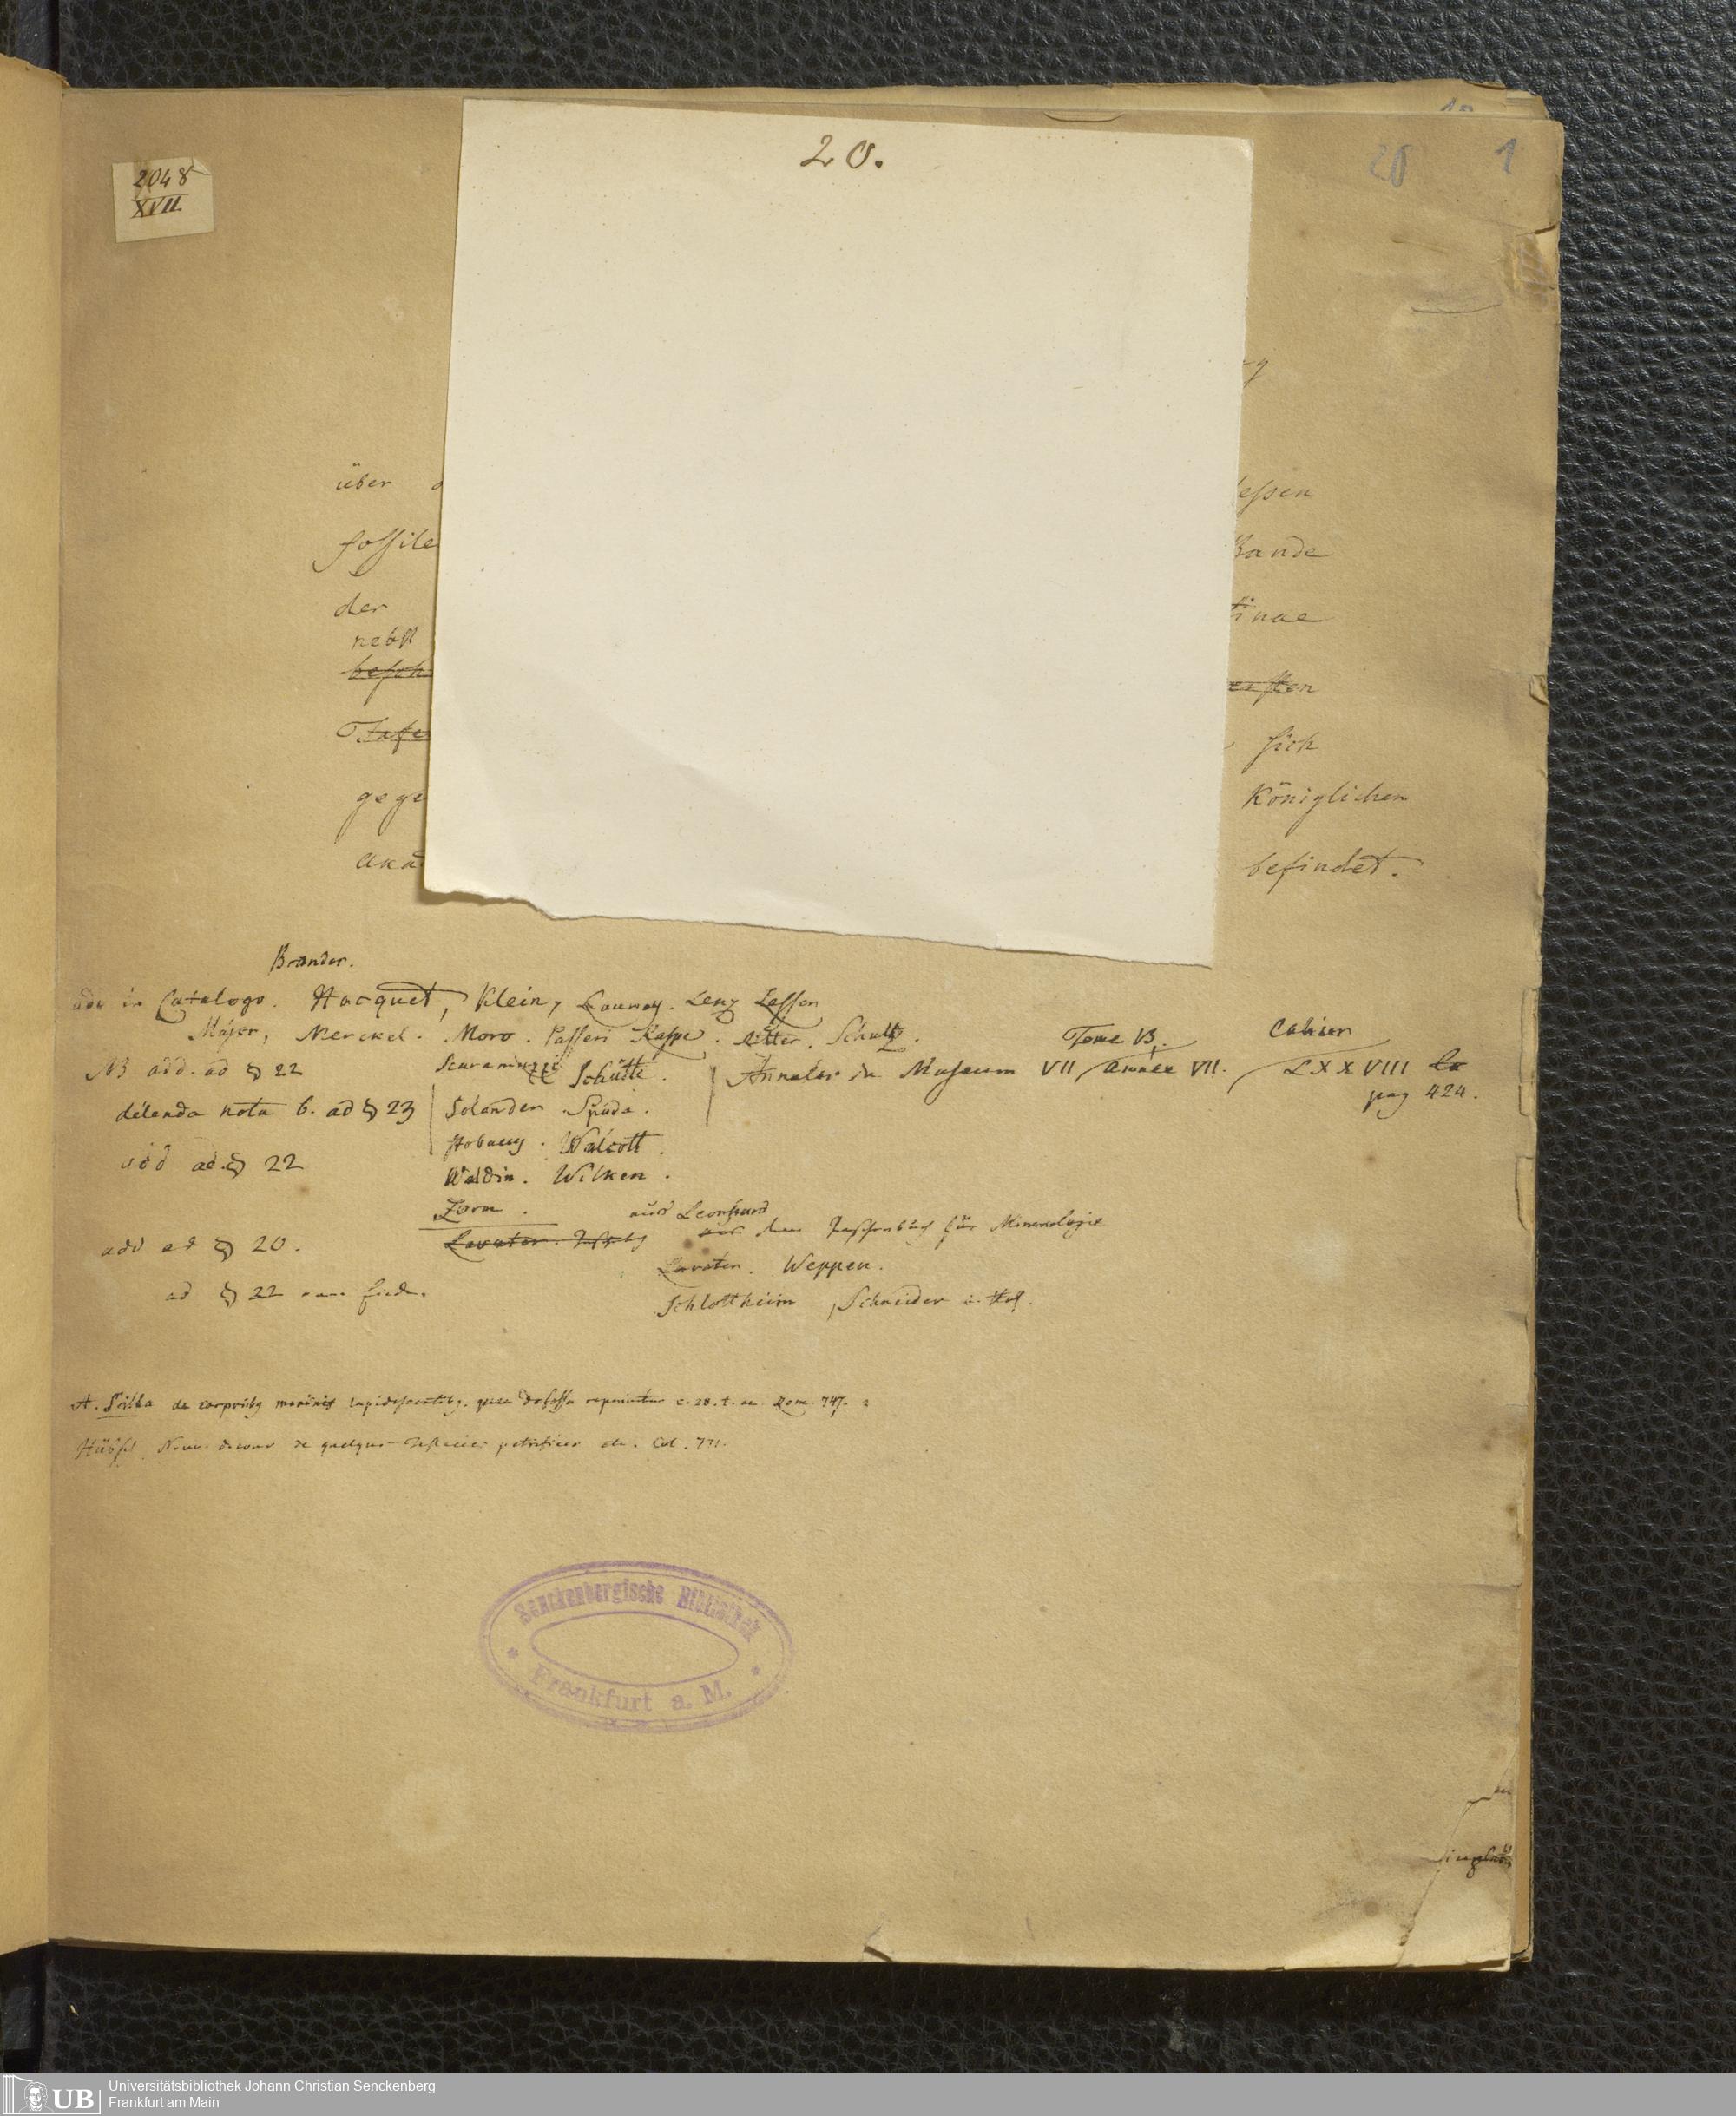 20.
20 1
2048
XVII
über
essen
fossile
Bande
der
tinae
nebst
besch
ersten
Tafe
sich
gege
Königlichen
aka
befindet.
Brander.
add in Catalogo. Hacquet, Klein, Launay. Lenz Lesser
Majer, Merckel. Moro. Passeri Raspe. Ritter. Schultz.
Tome 13. Cahier
NB add. ad § 22 Scaramuzzi Schütte. Annales du Museum VII année VII. LXXVIII
pag 424.
delenda nota b. ad § 23 Solander. Spada.
Stobaeus. Walcott.
add ad. § 22
Waldin. Wilken.
Zorn.
aus Leonhard
Taschenbuch für Mineralogie
add ad § 20. Lavater.
Lavater. Weppen.
ad § 22
Schlottheim, Schneider
A. Scilla de corporibg marinis lapidescentibg. quae defossa reperiuntur c. 28. t. ae. Rom. 747.
Hübsch. Nouv. decouv de quelques Testacées petrifiées etc. Col. 771.
Senckenbergische Bibliothek
* Frankfurt a. M. *
UB
Universitätsbibliothek Johann Christian Senckenberg
Frankfurt am Main